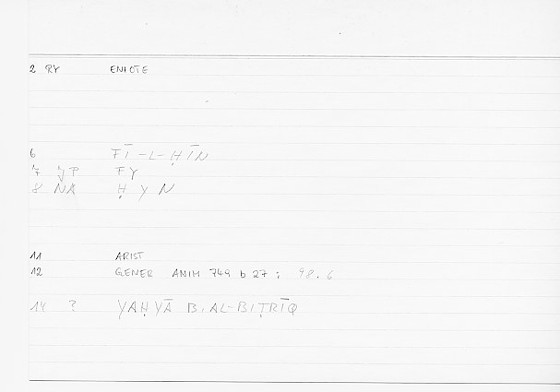 2 RY ENIOTE
6 FĪ-L-ḤĪN
7 JP FY
8 NA Ḥ Y N
11 ARIST
12 GENER ANIM 749 b 27 : 98.6
14 ? YAḤYĀ B. AL-BIṬRĪQ